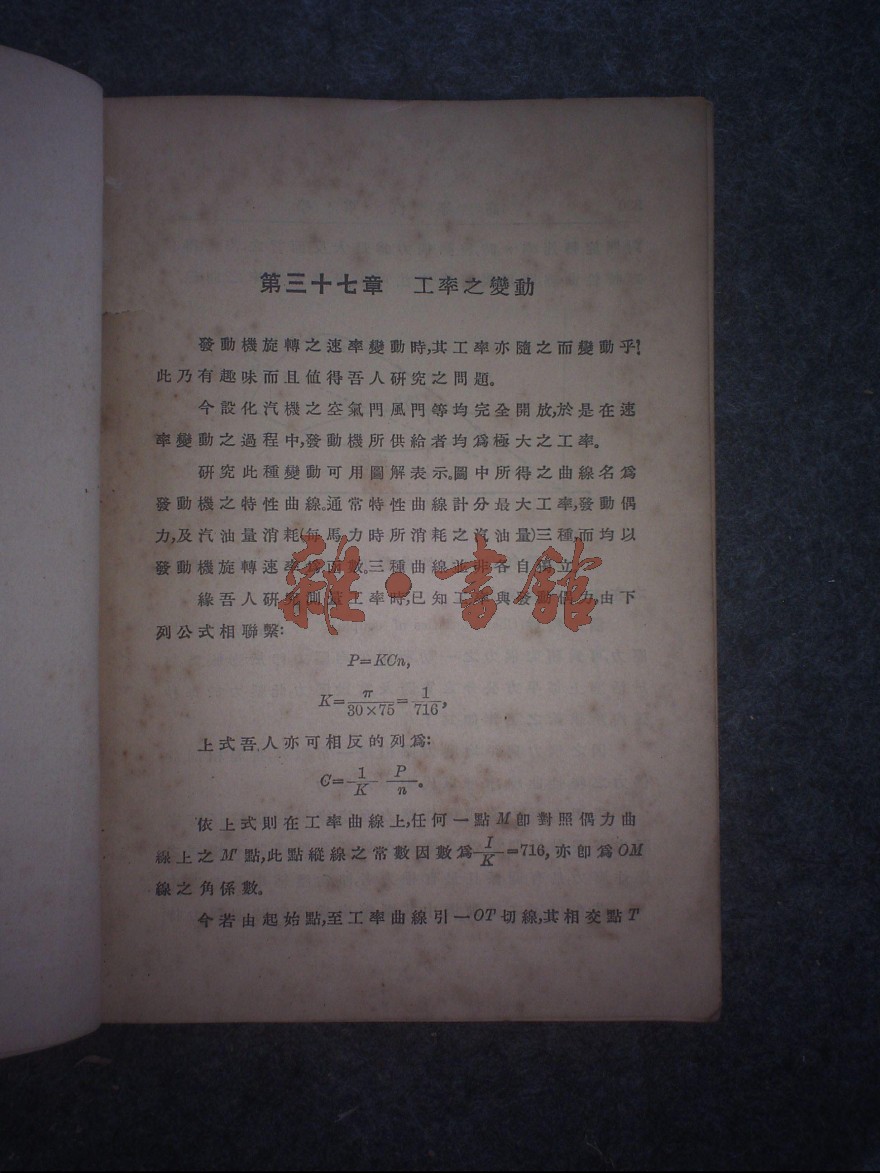 第三十七章　工率之變動
發動機旋轉之速率變動時,其工率亦隨之而變動乎!
此乃有趣味而且值得吾人研究之問題。
今設化汽機之空氣門風門等均完全開放,於是在速
率變動之過程中,發動機所供給者均爲極大之工率。
研究此種變動可用圖解表示。圖中所得之曲線名爲
發動機之特性曲線。通常特性曲線計分最大工率,發動偶
力,及汽油量消耗(每馬力時所消耗之汽油量)三種,而均以
發動機旋轉速率爲函數。三種曲線並非各自獨立。
緣吾人研究測量工率時,已知工率與發動偶力,由下
列公式相聯繫:
P=KCn,
K=π/30×75=1/716,
上式吾人亦可相反的列爲:
C=1/K P/n。
依上式則在工率曲線上,任何一點M卽對照偶力曲
線上之M'點,此點縱線之常數因數爲I/K=716,亦卽爲OM
線之角係數。
今若由起始點,至工率曲線引一OT切線,其相交點T
雜·書館